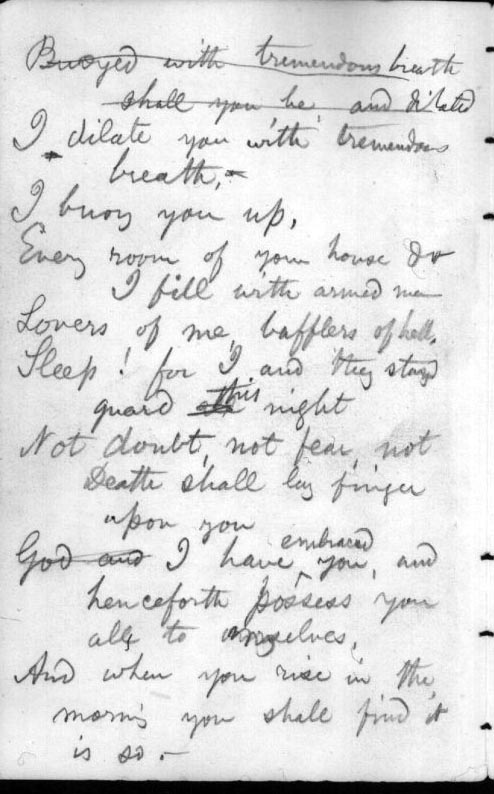 Buoyed with tremendous breath
shall you be, and dilated
I dilate you with tremendous
breath,—
I buoy you up,
Every room of your house do
I fill with armed men
Lovers of me, bafflers of hell,
Sleep! for I and they stand
guard this night
Not doubt, not fear, not
Death shall lay finger
upon you
God and I have embraced you, and
henceforth possess you
all, to myselves,
And when you rise in the
morning you shall find it
is so.—